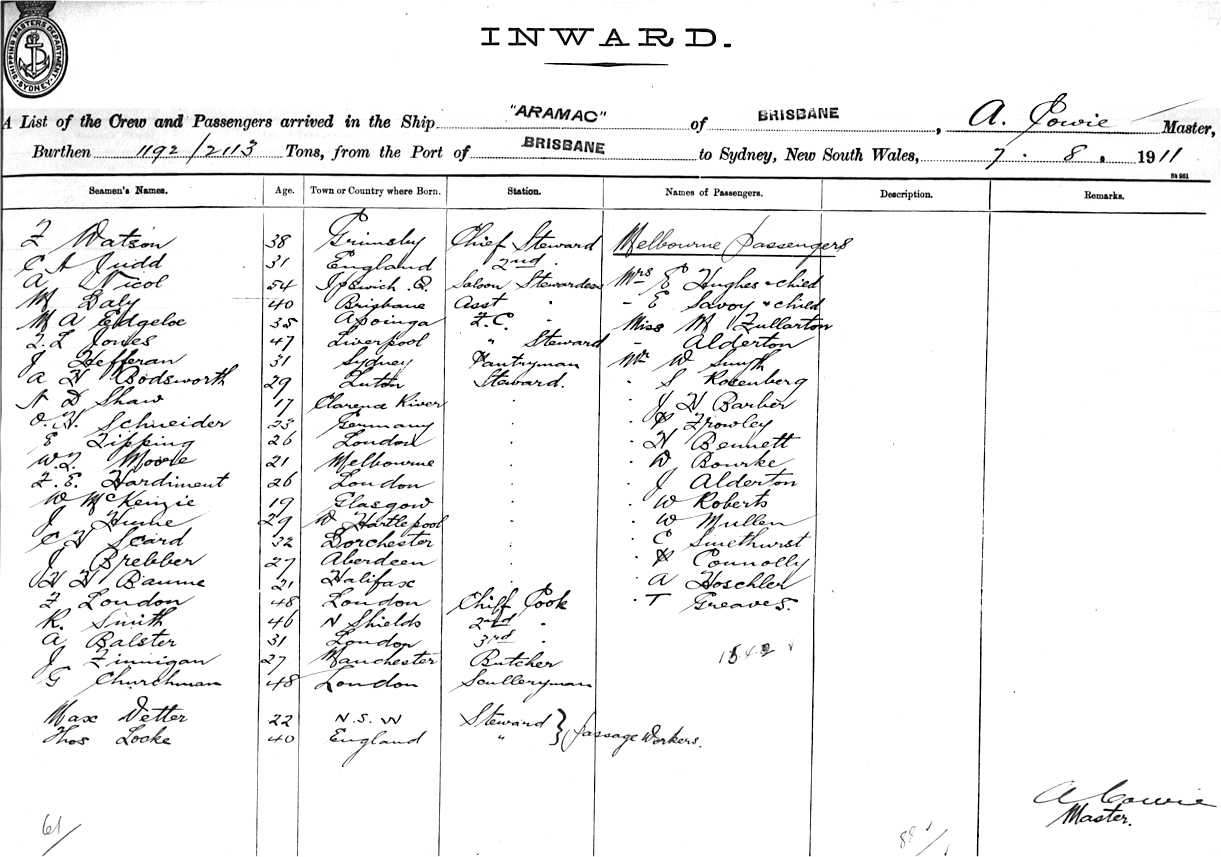 SHIPPING MASTERS DEPARTMENT SYDNEY
INWARD.
A List of the Crew and Passengers arrived in the Ship "ARAMAC" of BRISBANE, A. Cowie Master,
Burthen 1192/2113 Tons, from the Port of BRISBANE to Sydney, New South Wales, 7. 8. 1911
Seamen's Names. Age. Town or Country where Born. Station. Names of Passengers. Description. Remarks.
F Watson 38 Grimsby Chief Steward Melbourne Passengers
C A Judd 31 England 2nd "
A Nicol 54 Ipswich Q. Saloon Stewardess Mrs E Hughes & child
M Daly 40 Brisbane Asst " " E Savoy & child
M A Edgeloe 35 Apoinga F.C. " Miss M Fullarton
F. L Jones 47 Liverpool " Steward " Alderton
J Hefferan 31 Sydney Pantryman Mr W Smyth
A H Bodsworth 29 Luton Steward. " S Rosenberg
N D Shaw 17 Clarence River " " J H Barber
O. H. Schneider 23 Germany " " Frowley
E Tipping 26 London " " H Bennett
W. F. Moore 21 Melbourne " " W Bourke
F. E. Hardiment 26 London " " J Alderton
W McKenzie 19 Glasgow " " W Roberts
J Hume 29 W Hartlepool " " W Mullen
C H Scard 32 Dorchester " " C Smethurst
J Brebber 27 Aberdeen " " Connolly
H H Baume 21 Halifax " " A Hoschler
F London 48 London Chief Cook " T Greaves.
R. Smith 46 N Shields 2nd "
A Balster 31 London 3rd "
J Finnigan 27 Manchester Butcher
G Churchman 48 London Sculleryman
Max Vetter 22 N.S.W Steward } Passage Workers.
Thos Locke 40 England "
A Cowie
Master.
61/